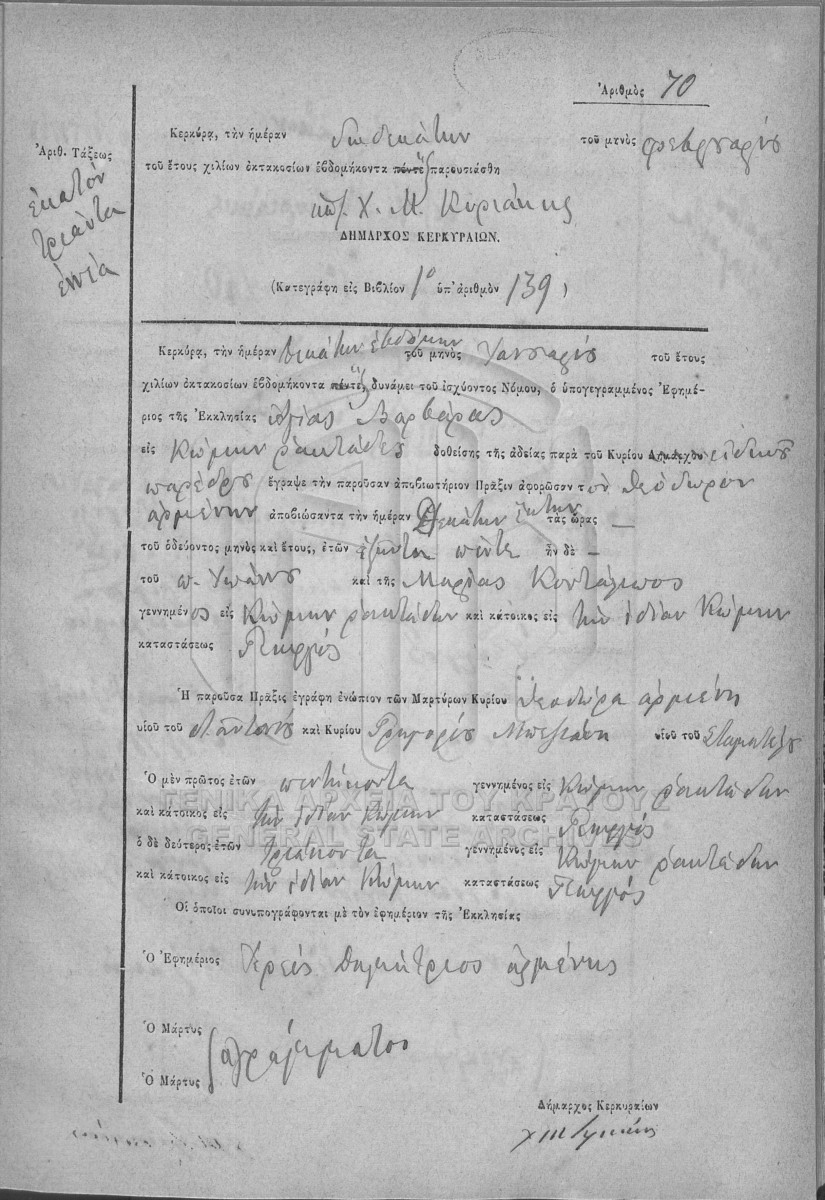 Ἀριθμὸς 70
Ἀριθ. Τάξεως
ἑκατὸν
τριάντα
ἐννέα
Κερκύρᾳ, τὴν ἡμέραν δωδεκάτην τοῦ μηνὸς Φεβρουαρίου
τοῦ ἔτους χιλίων ὀκτακοσίων ἑβδομήκοντα πέντε παρουσιάσθη
Χ. Μ. Κυριάκης
ΔΗΜΑΡΧΟΣ ΚΕΡΚΥΡΑΙΩΝ.
(Κατεγράφη εἰς Βιβλίον 1ο ὑπ' ἀριθμὸν 139)
Κερκύρᾳ, τὴν ἡμέραν δεκάτην ἑβδόμην τοῦ μηνὸς Ἰανουαρίου τοῦ ἔτους
χιλίων ὀκτακοσίων ἑβδομήκοντα πέντε δυνάμει τοῦ ἰσχύοντος Νόμου, ὁ ὑπογεγραμμένος Ἐφημέ-
ριος τῆς Ἐκκλησίας Ἁγίας Βαρβάρας
εἰς Κώμην Ραχτάδες δοθείσης τῆς ἀδείας παρὰ τοῦ Κυρίου Δημάρχου εἰδικοῦ
παρέδρου ἔγραψε τὴν παροῦσαν ἀποβιωτήριον Πρᾶξιν ἀφορῶσαν τὸν Θεόδωρον
Ἀρμένην ἀποβιώσαντα τὴν ἡμέραν Δεκάτην ἕκτην τὰς ὥρας —
τοῦ ὁδεύοντος μηνὸς καὶ ἔτους, ἐτῶν ἑξήντα πέντε ἦν δὲ —
τοῦ π. Ἰωάννου καὶ τῆς Μαρίας
γεννημένος εἰς Κώμην Ραχτάδων καὶ κάτοικος εἰς τὴν ἰδίαν Κώμην
καταστάσεως Γεωργός
Ἡ παροῦσα Πρᾶξις ἐγράφη ἐνώπιον τῶν Μαρτύρων Κυρίου Θεοδώρα Ἀρμένη
υἱοῦ τοῦ Ἀντωνίου καὶ Κυρίου Γρηγορίου υἱοῦ τοῦ Σταματέλου
Ὁ μὲν πρῶτος ἐτῶν πεντήκοντα γεννημένος εἰς Κώμην Ραχτάδων
καὶ κάτοικος εἰς τὴν ἰδίαν Κώμην καταστάσεως Γεωργός
ὁ δὲ δεύτερος ἐτῶν τριάκοντα γεννημένος εἰς Κώμην Ραχτάδων
καὶ κάτοικος εἰς τὴν ἰδίαν Κώμην καταστάσεως Γεωργός
Οἱ ὁποῖοι συνυπογράφονται μὲ τὸν ἐφημέριον τῆς Ἐκκλησίας
Ὁ Ἐφημέριος Ἱερεὺς Δημήτριος Ἀρμένης
Ὁ Μάρτυς
ἀγράμματοι
Ὁ Μάρτυς
Δήμαρχος Κερκυραίων
ΓΕΝΙΚΑ ΑΡΧΕΙΑ ΤΟΥ ΚΡΑΤΟΥΣ
GENERAL STATE ARCHIVES